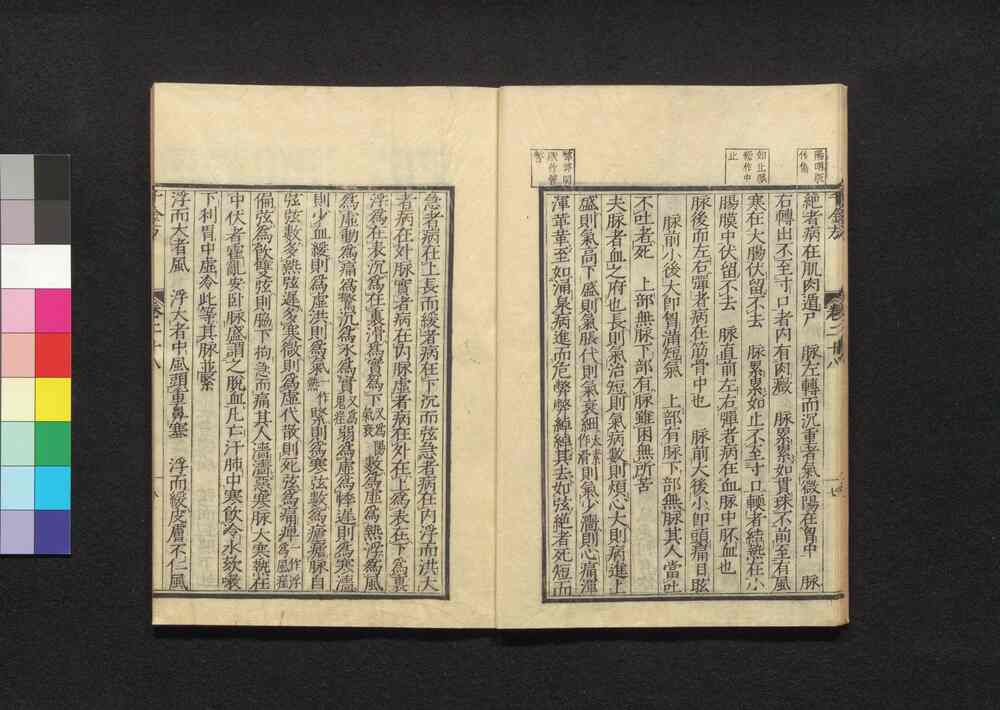 絶者病在肌肉遁尸　脉左轉而沉重者氣微陽在胷中　脉
右轉出不至寸口者内有肉癥　脉累累如貫珠不前至有風
寒在大腸伏留不去　脉累累如止不至寸口軟者結熱在小
腸膜中伏留不去　脉直前左右彈者病在血脉中胚血也
脉後而左右彈者病在筋骨中也　脉前大後小即頭痛目眩
脉前小後大即胷滿短氣　上部有脉下部無脉其人當吐
不吐者死　上部無脉下部有脉雖困無所苦
夫脉者血之府也長則氣治短則氣病數則煩心大則病進上
盛則氣高下盛則氣脹代則氣衰細太素作滑則氣少濇則心痛渾
渾革革至如涌泉病進而危弊弊綽綽其去如弦絶者死短而
急者病在上長而緩者病在下沉而弦急者病在内浮而洪大
者病在外脉實者病在内脉虛者病在外在上為表在下為裏
浮為在表沉為在裏滑為實為下又為陽氣衰數為虛為熱浮為風
為虛動為痛為驚沉為水為實又為鬼疰弱為虛為悸遲則為寒濇
則少血緩則為虛洪則為氣一作熱緊則為寒弦數為瘧瘧脉自
弦弦數多熱弦遲多寒微則為虛代散則死弦為痛痹一作浮為風疰
偏弦為飲雙弦則脇下拘急而痛其人濇濇惡寒脉大寒熱在
中伏者霍亂安卧脉盛謂之脫血凡亡汗肺中寒飲冷水欬嗽
下利胃中虛冷此等其脉並緊
浮而大者風　浮大者中風頭重鼻塞　浮而緩皮膚不仁風
千金方
卷二十八